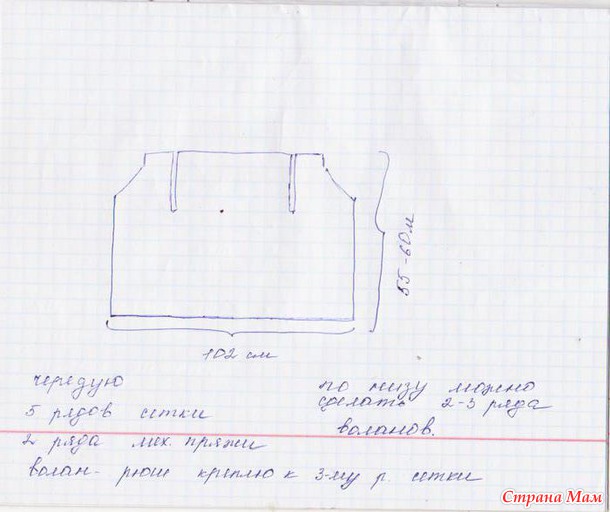 55-60м
102 см
чередую
5 рядов сетки
2 ряда мех. пряжи
волан- рюш креплю к 3-му р. сетки
по низу можно
сделать 2-3 ряда
воланов.
Страна Мам